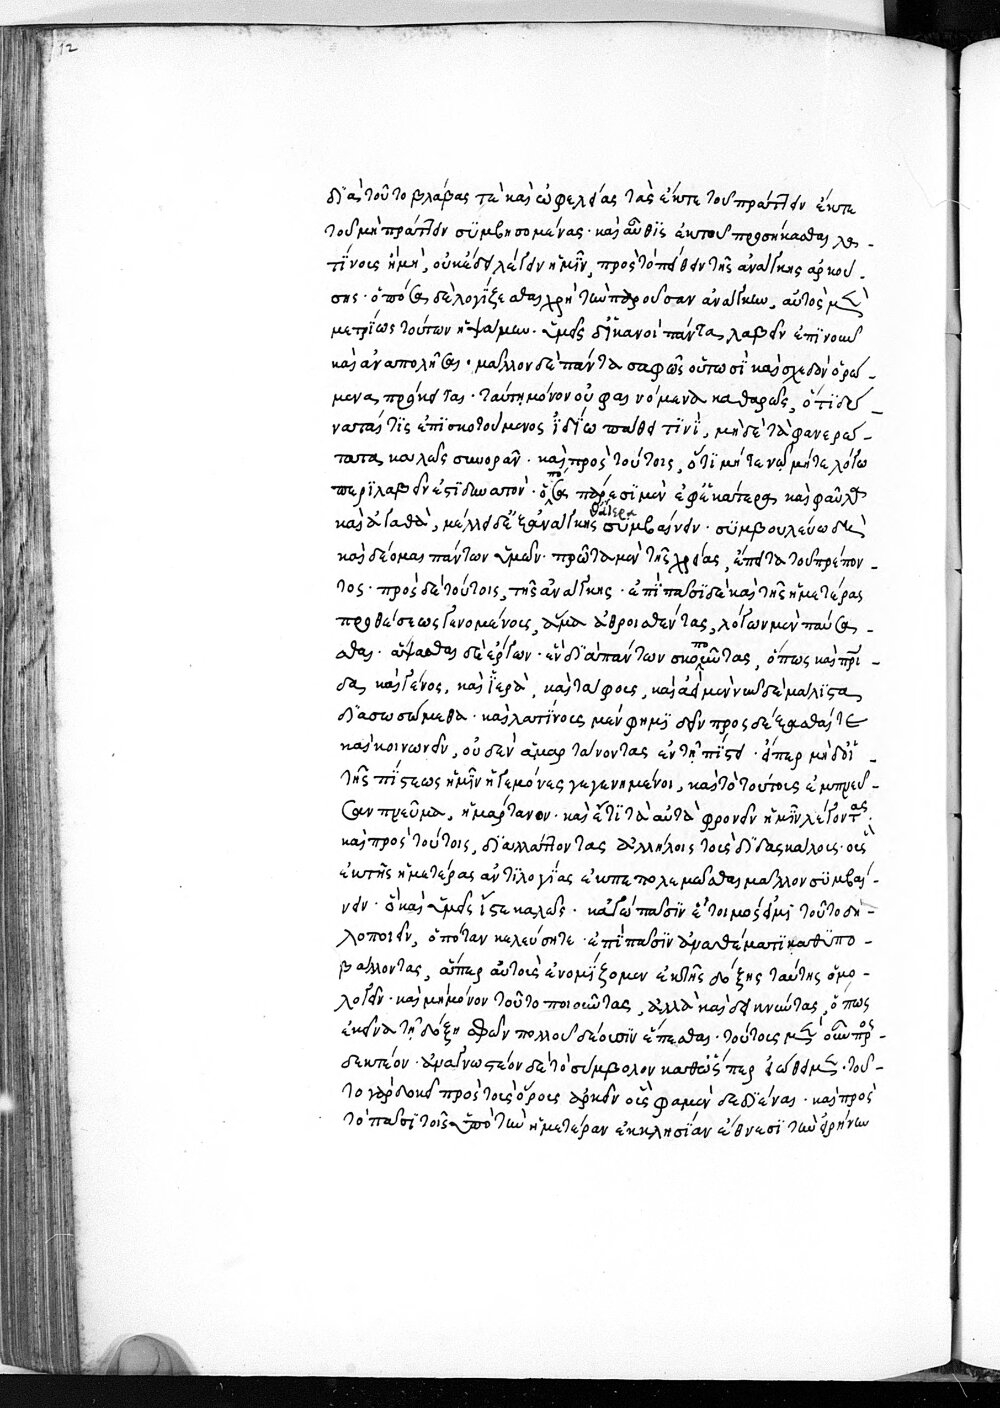 12
διὰ τοῦτο βλάβας τὲ καὶ ὠφελείας τὰς ἔκ τε τοῦ πράττειν ἔκ τε
τοῦ μὴ πράττειν συμβησομένας· καὶ αὖθις ἐκ τοῦ προσήκασθαι λα-
τίνοις ἢ μὴ, οὐκ ἔδει λέγειν ἡμῖν, πρὸς τὸ πείθειν τῆς ἀνάγκης ἀρκού-
σης· ὁπόση δὲ λογίζεσθαι χρὴ τὴν παροῦσαν ἀνάγκην, αὐτὸς μὲν
μετρίως τούτων ἡψάμην· ὑμεῖς δ' ἱκανοὶ πάντα λαβεῖν ἐπὶ νοῦν
καὶ ἀναπολῆσαι· μᾶλλον δὲ πάντα σαφῶς οὑτωσὶ καὶ σχεδὸν ὁρώ-
μενα πρόκειται· ταύτῃ μόνον οὐ φαινόμενα καθαρῶς, ὅτι δύ-
ναταί τις ἐπισκοτούμενος ἰδίω πάθει τινὶ, μηδὲ τὰ φανερώ-
τατα καλῶς συνορᾶν· καὶ πρὸς τούτοις, ὅτι μήτε νῷ μήτε λόγω
περιλαβεῖν ἐστὶ δυνατὸν· ὁπόσα πάρεστι μὲν ἐφ' ἑκάτερα καὶ φαῦλα
καὶ ἀγαθὰ, μέλλει δ' ἐξ ἀνάγκης θάτερα συμβαίνειν· συμβουλεύω δὲ
καὶ δέομαι πάντων ὑμῶν· πρῶτα μὲν τῆς χρείας, ἔπειτα τοῦ πρέπον-
τος· πρὸς δὲ τούτοις, τῆς ἀνάγκης· ἐπὶ πᾶσι δὲ καὶ τῆς ἡμετέρας
προθέσεως γενομένοις, ἅμα ἀθροισθέντας, λόγων μὲν παύσα-
σθαι· ἅψασθαι δὲ ἔργων· ἓν δι' ἁπάντων σκοποῦντας, ὅπως καὶ πατρί-
δα, καὶ γένος, καὶ ἱερὰ, καὶ τάφοις, καὶ μάλιστα
διασωσώμεθα· καὶ λατίνους μέν φημι δεῖν προσδέξασθαί τε
καὶ κοινωνεῖν, οὐδὲν ἁμαρτάνοντας ἐν τῇ πίστει· εἴπερ μηδ' οἱ
τῆς πίστεως ἡμῖν ἡγεμόνες γεγενημένοι, καὶ τὸ τούτοις ἐμπνεῦ-
σαν πνεῦμα, ἡμάρτανον· καὶ ἔτι τὰ αὐτὰ φρονεῖν ἡμῖν λέγοντας·
καὶ πρὸς τούτοις, διαλλάττοντας ἀλλήλοις τοὺς διδασκάλους· οὓς
ἐκ τῆς ἡμετέρας ἀντιλογίας ἐκπεπολεμῶσθαι μᾶλλον συμβαί-
νειν· ὃ καὶ ὑμεῖς ἴστε καλῶς· κἀγὼ πᾶσιν ἕτοιμός εἰμι τοῦτο δῆ-
λον ποιεῖν, ὁπόταν κελεύσητε· ἐπὶ πᾶσιν ἀναθέματι καθυπο-
βάλλοντας, ἅπερ αὐτοὺς ἐνομίζομεν ἐκ τῆς δόξης ταύτης ὁμο-
λογεῖν· καὶ μὴ μόνον τοῦτο ποιοῦντας, ἀλλὰ καὶ δεικνύντας, ὅπως
ἐκεῖνα τῇ δόξῃ αὐτῶν πολλοῦ δέουσιν ἕπεσθαι· τούτους μὲν οὖν προσ-
δεκτέον· ἀναγνωστέον δὲ τὸ σύμβολον καθὼς περ εἰώθαμεν· τού-
το γὰρ δοκεῖ πρὸς τοῖς ὅροις ἀρκεῖν οἷς φαμὲν δεδιέναι· καὶ πρὸς
τὸ πᾶσι τοῖς ὑπὸ τὴν ἡμετέραν ἐκκλησίαν ἔθνεσι τὴν εἰρήνην